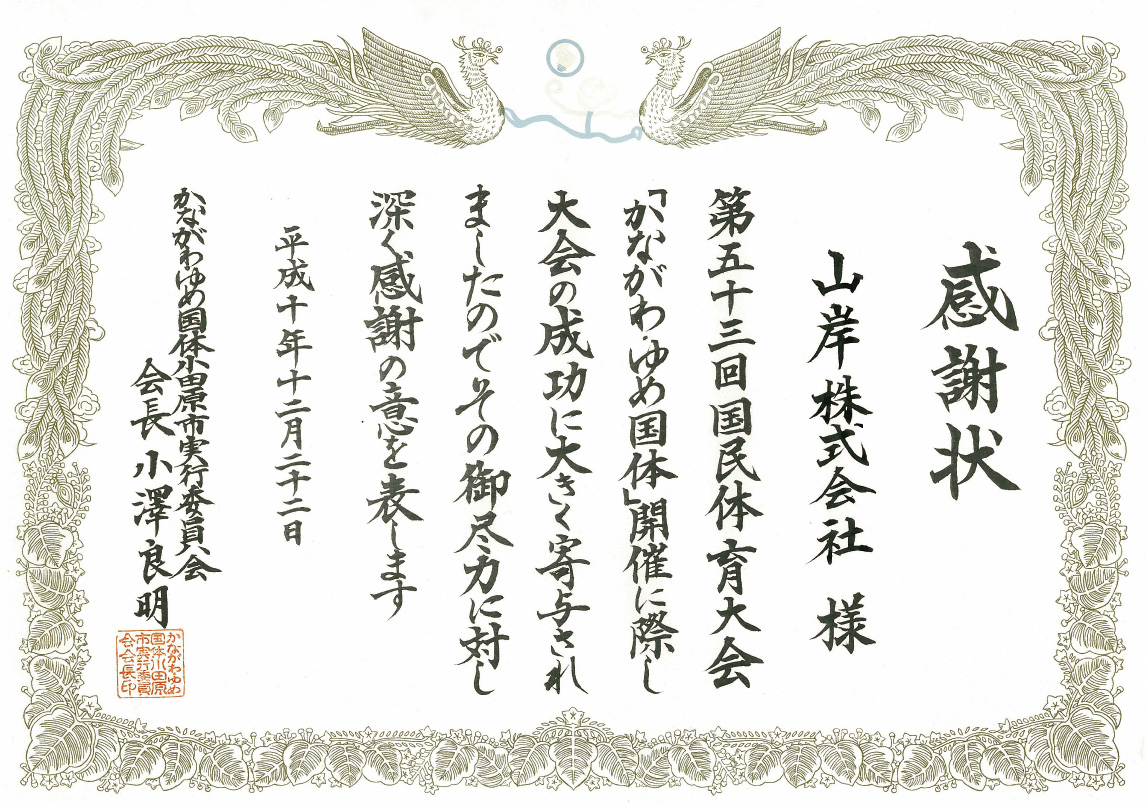 感謝状
山岸株式会社 様
第五十三回国民体育大会
「かながわ・ゆめ国体」開催に際し
大会の成功に大きく寄与され
ましたのでその御尽力に対し
深く感謝の意を表します
平成十年十二月二十二日
かながわゆめ国体小田原市実行委員会
会長 小澤良明
かながわゆめ
国体小田原
市実行委員
会会長印